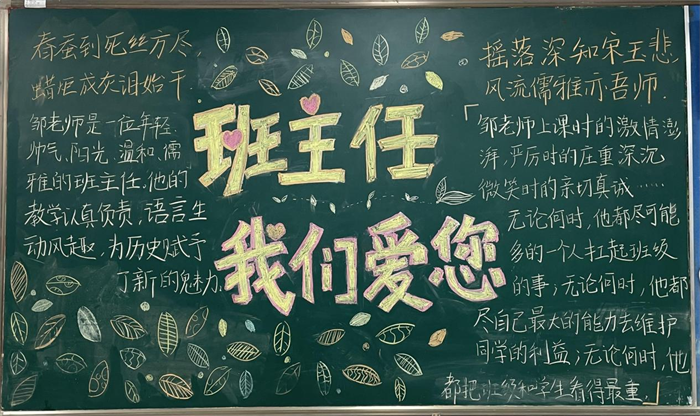 春蚕到死丝方尽
蜡炬成灰泪始干
邹老师是一位年轻
帅气、阳光、温和、儒
雅的班主任,他的
教学认真负责,语言生
动风趣,为历史赋予
了新的魅力.
班主任
我们爱您
摇落深知宋玉悲
风流儒雅亦吾师.
「邹老师上课时的激情澎
湃,严厉时的庄重深沉
微笑时的亲切真诚……
无论何时,他都尽可能
多的一个人扛起班级
的事;无论何时,他都
尽自己最大的能力去维护
同学的利益;无论何时,他
都把班级和学生看得最重.」